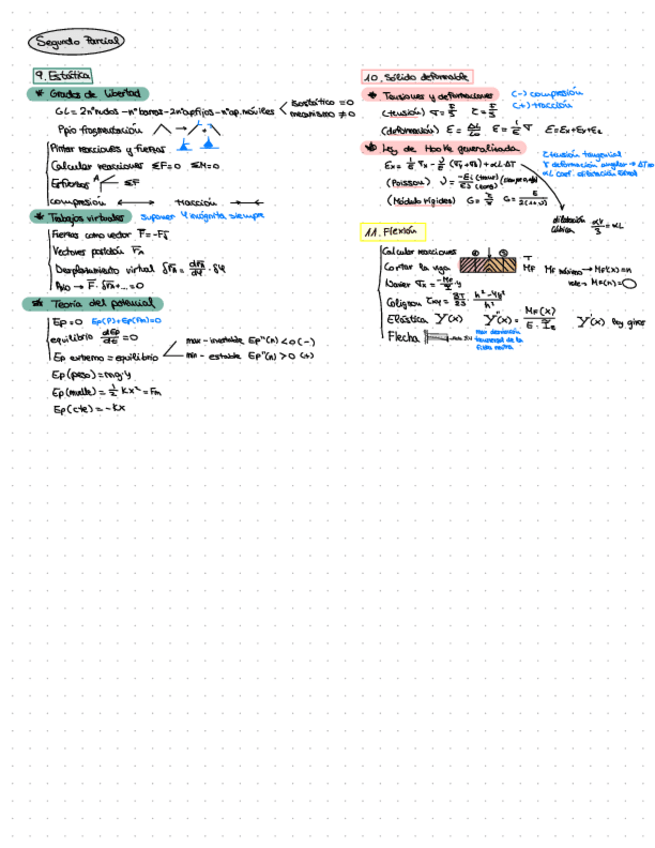 Segundo Parcial
9. Estática
* Grados de libertad
GL = 2nºnudos - nºbarras - 2nºap.fijos - nºap. móviles < isostático = 0
mecanismo ≠ 0
Ppio fragmentación
Pintar reacciones y fuerzas
Calcular reacciones ΣF=0 ΣM=0
Esfuerzos A ΣF
compresión tracción
* Trabajos virtuales suponer 4 incógnita siempre
Fuerzas como vector F̄ = -Fj̄
Vectores posición r̄A
Desplazamiento virtual δr̄A = dr̄A/dφ · δφ
F̄ · δr̄A + ... = 0
* Teoría del potencial
Ep = 0 Ep(P)+Ep(Fm)=0
equilibrio dEp/dθ = 0
max - inestable Ep''(n) < 0 (-)
Ep extremo = equilibrio
min - estable Ep''(n) > 0 (+)
Ep (peso) = mgy
Ep (muelle) = 1/2 Kx² = Fm
Ep (cte) = -Kx
10. Sólido deformable
* Tensiones y deformaciones (-) compresión
(+) tracción
(tensión) σ = F/S τ = F/S
(deformación) ε = ΔL/L₀ ε = 1/E σ ε = εx+εy+εz
* Ley de Hooke generalizada
τ tensión tangencial
γ deformación angular → ΔT=0
αL coef. dilatación lineal
εx = 1/E σx - ν/E (σy+σz) + αL ΔT
(Poisson) ν =
(Módulo rigidez) G = τ/γ G = E/2(1+ν)
dilatación
cúbica αV/3 = αL
11. Flexión
Calcular reacciones
Cortar la viga T
MF MF máximo → MF(x)=n
Navier σx = -MF/I · y
Colignon
h²-4y²/h²
Elástica y(x) y''(x) = MF(x)/E·Iz y'(x) hay giros
Flecha
max desviación
transversal de la
fibra neutra